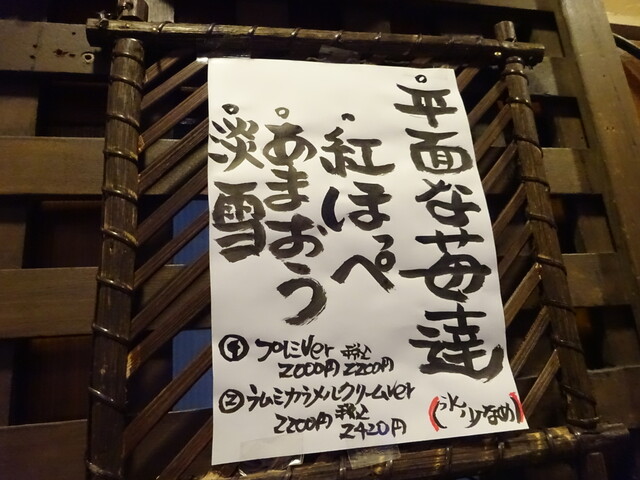 。平面な苺達
(氷少なめ)
・紅ほっぺ
。あまおう
。淡雪
① プレミVer
2000円 税込2200円
② ラムミカラメルクリームver
2200円 税込2420円